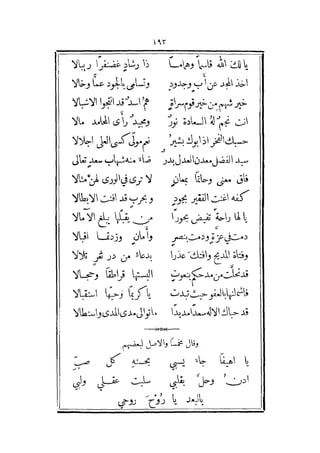 ١٩٢
يا لك الله قاسماً وهاماً ذا رشادٍ غضنفراً ريبالا
اخذ المجد عن أبٍ وجدودٍ وتسامى بالجود عماً وخالا
خير شهم من خير قوم سراةٍ هم اسدٌ قد انتجوا الاشبالا
انت نجمٌ لهُ السعادة نورٌ ومجيدٌ رأى المحامد مالا
حسبك الفخر اذ ابوك بشيرٌ نعم مولى كسى العلى اجلالا
سيد الفضل معدن العدل بدرٌ ضاءَ منهُ شهاب سعدٍ تعالى
فاق معنى وحاتماً بمعانٍ لا ترى في الورى لهن مثالا
كفه اغنت الفقير بجودٍ وبحربٍ قد افنت الابطالا
يا لها راحةً تفيض بحوراً من يقبلها يبلغ الآمالا
دمت في عزةٍ ودمت بنصرٍ وأمانٍ وزدت اقبالا
وفتاة المديح وافتك عذرا بدعاءٍ من در ثغرٍ تلالا
قد تحلت من مدحكم بنعوتٍ البستها قراطقاً وحجالا
فاشملنها بالعفو حيث تبدت يا كريماً وحيها استقبالا
قد حباك الاله سعداً مديداً ما توالى مدى المدى واستطالا
وقال مخمساً والاصل لبعضهم
يا اهيفاً جاءَ يسبي بحسنهِ كل صبِّ
ادن وحل بقلبي سلبت عقلي ولبي
بالبعد يا رُوحَ روحي